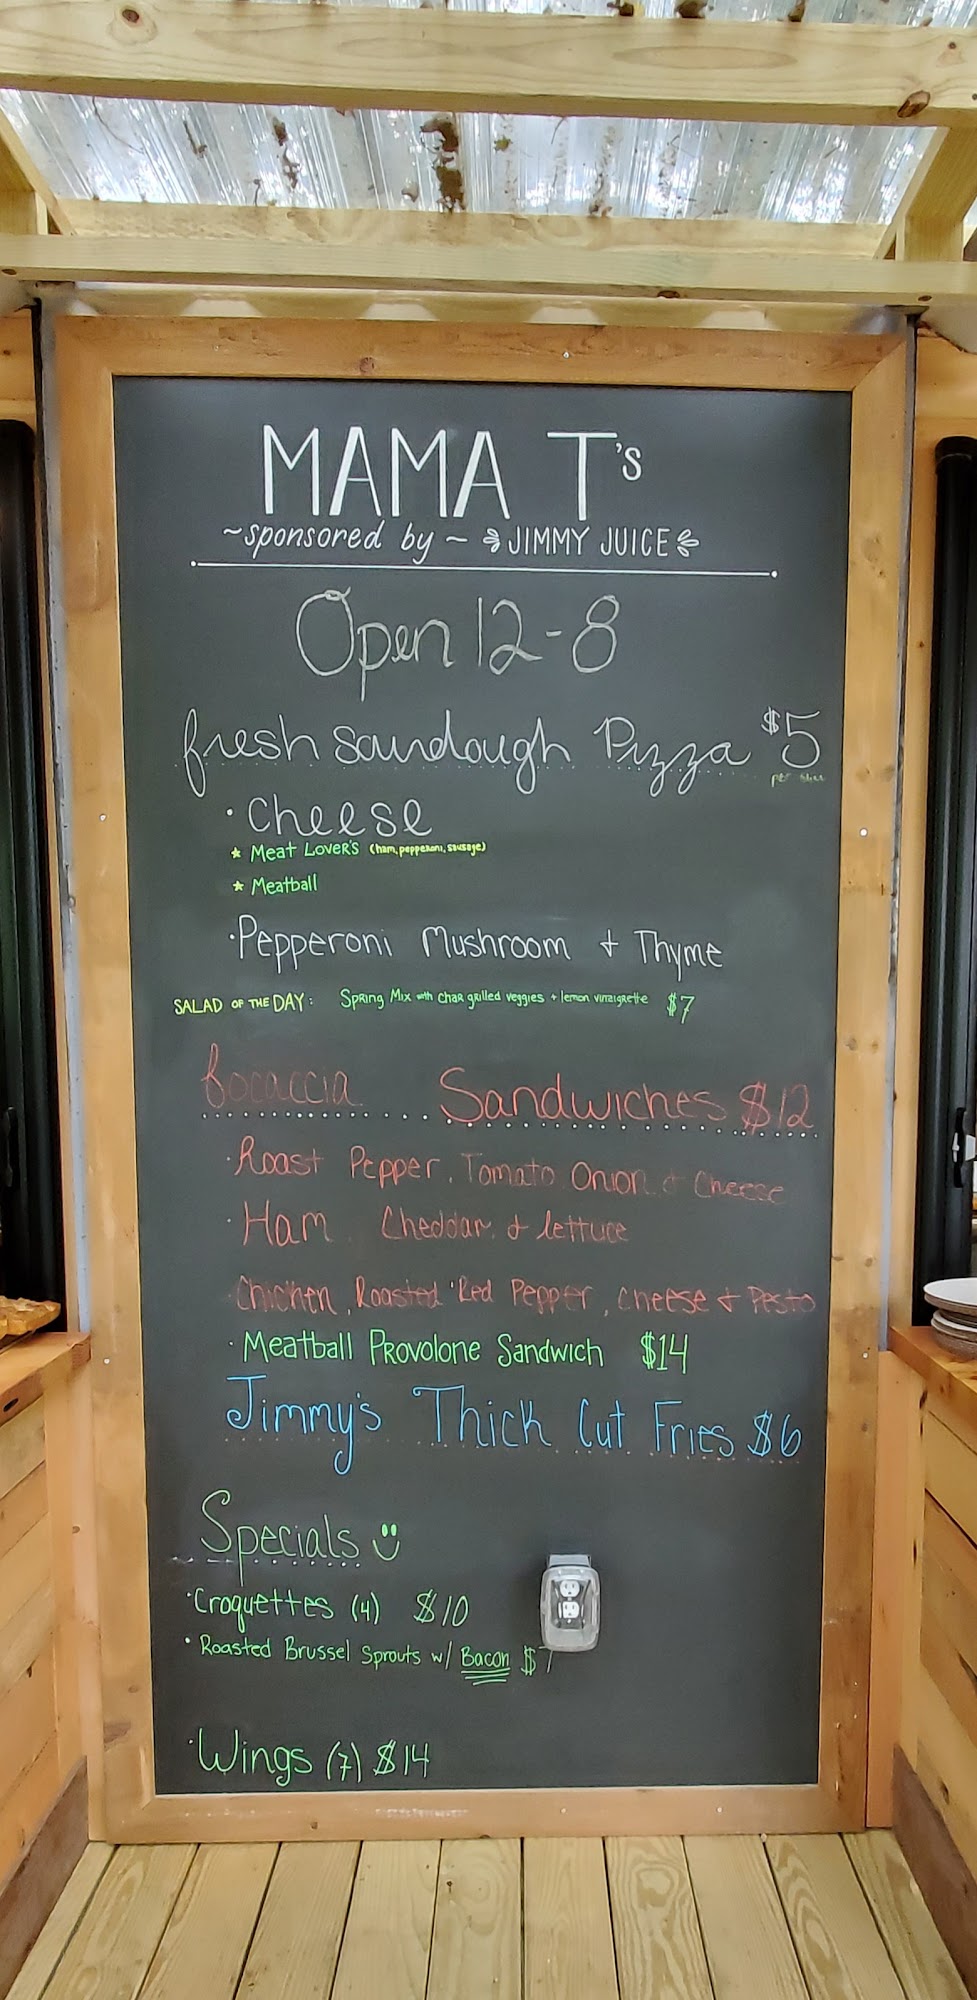 MAMA T's
~sponsored by~ JIMMY JUICE
Open 12-8
fresh sourdough Pizza $5
per slice
· Cheese
* Meat Lover's (ham, pepperoni, sausage)
* Meatball
· Pepperoni Mushroom + Thyme
SALAD OF THE DAY: Spring Mix with char grilled veggies + lemon vinaigrette $7
focaccia Sandwiches $12
· Roast Pepper, Tomato Onion & Cheese
· Ham, Cheddar, & lettuce
· Chicken, Roasted Red Pepper, Cheese + Pesto
· Meatball Provolone Sandwich $14
Jimmy's Thick Cut Fries $6
Specials
· Croquettes (4) $10
· Roasted Brussel Sprouts w/ Bacon $7
· Wings (7) $14